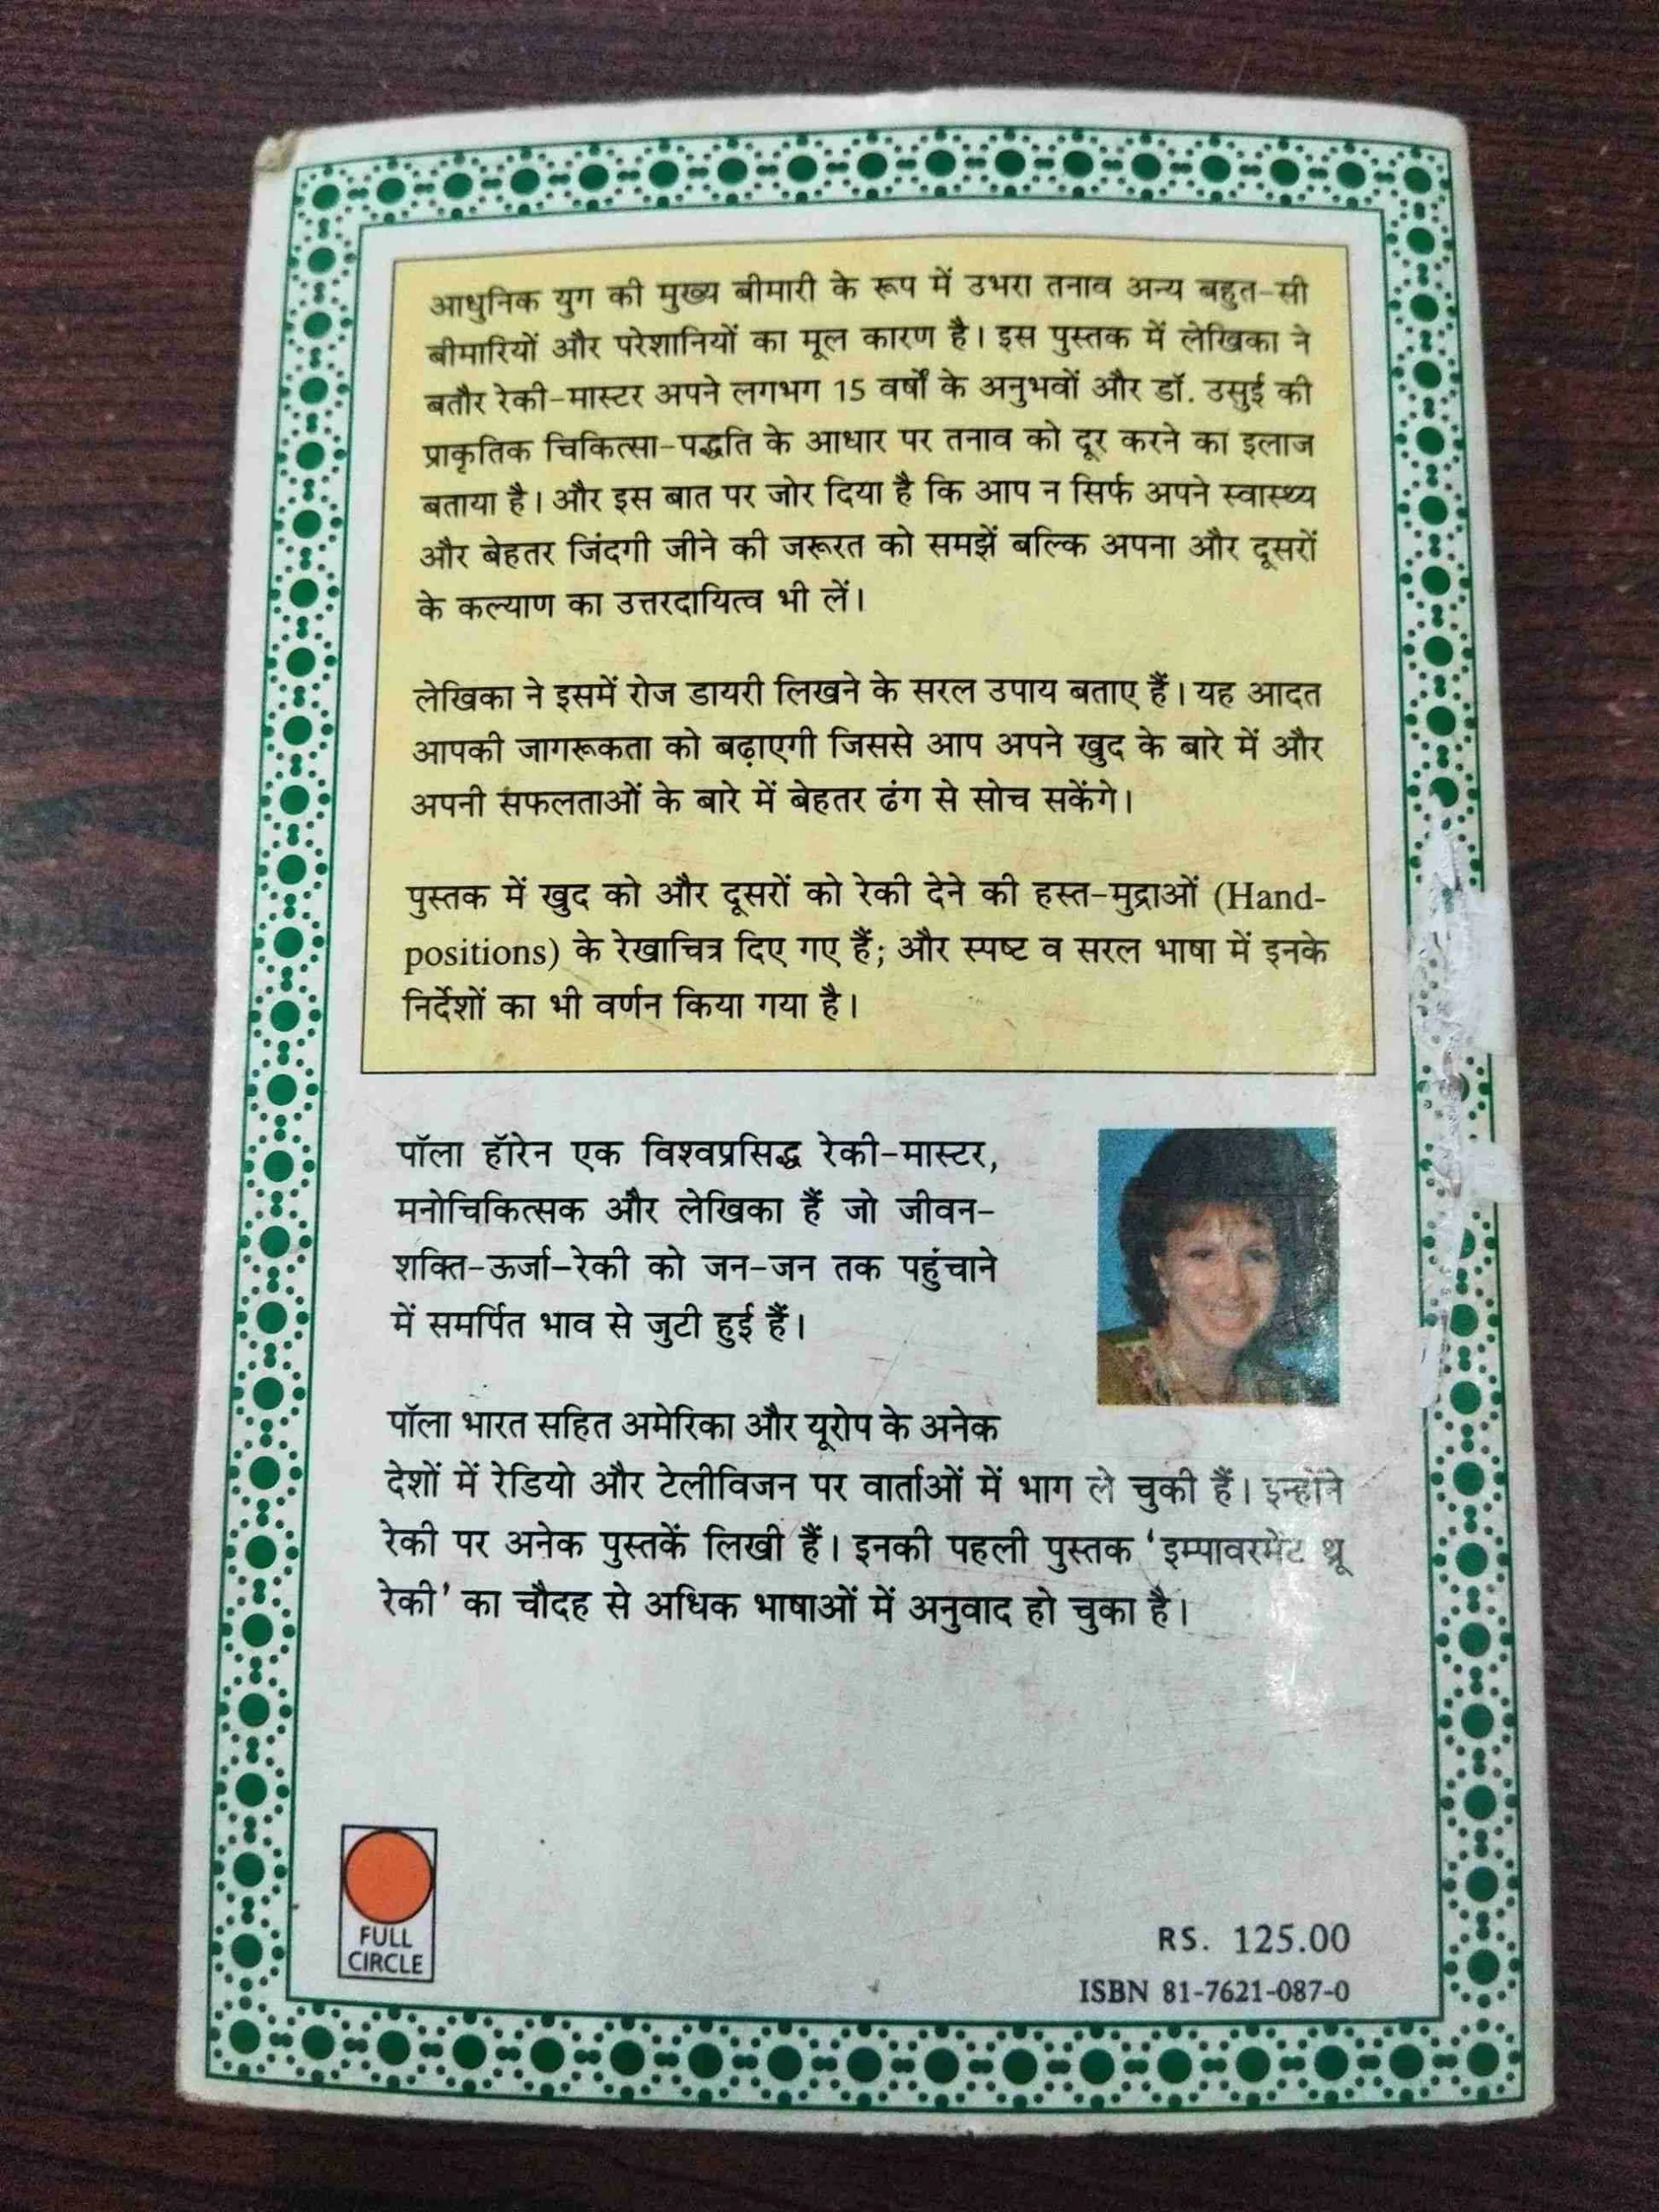 आधुनिक युग की मुख्य बीमारी के रूप में उभरा तनाव अन्य बहुत-सी
बीमारियों और परेशानियों का मूल कारण है। इस पुस्तक में लेखिका ने
बतौर रेकी-मास्टर अपने लगभग 15 वर्षों के अनुभवों और डॉ. उसुई की
प्राकृतिक चिकित्सा-पद्धति के आधार पर तनाव को दूर करने का इलाज
बताया है। और इस बात पर जोर दिया है कि आप न सिर्फ अपने स्वास्थ्य
और बेहतर जिंदगी जीने की जरूरत को समझें बल्कि अपना और दूसरों
के कल्याण का उत्तरदायित्व भी लें।
लेखिका ने इसमें रोज डायरी लिखने के सरल उपाय बताए हैं। यह आदत
आपकी जागरूकता को बढ़ाएगी जिससे आप अपने खुद के बारे में और
अपनी सफलताओं के बारे में बेहतर ढंग से सोच सकेंगे।
पुस्तक में खुद को और दूसरों को रेकी देने की हस्त-मुद्राओं (Hand-
positions) के रेखाचित्र दिए गए हैं; और स्पष्ट व सरल भाषा में इनके
निर्देशों का भी वर्णन किया गया है।
पॉला हॉरेन एक विश्वप्रसिद्ध रेकी-मास्टर,
मनोचिकित्सक और लेखिका हैं जो जीवन-
शक्ति-ऊर्जा-रेकी को जन-जन तक पहुंचाने
में समर्पित भाव से जुटी हुई हैं।
पॉला भारत सहित अमेरिका और यूरोप के अनेक
देशों में रेडियो और टेलीविजन पर वार्ताओं में भाग ले चुकी हैं। इन्होंने
रेकी पर अनेक पुस्तकें लिखी हैं। इनकी पहली पुस्तक 'इम्पावरमेंट थ्रू
रेकी' का चौदह से अधिक भाषाओं में अनुवाद हो चुका है।
FULL
CIRCLE
RS. 125.00
ISBN 81-7621-087-0